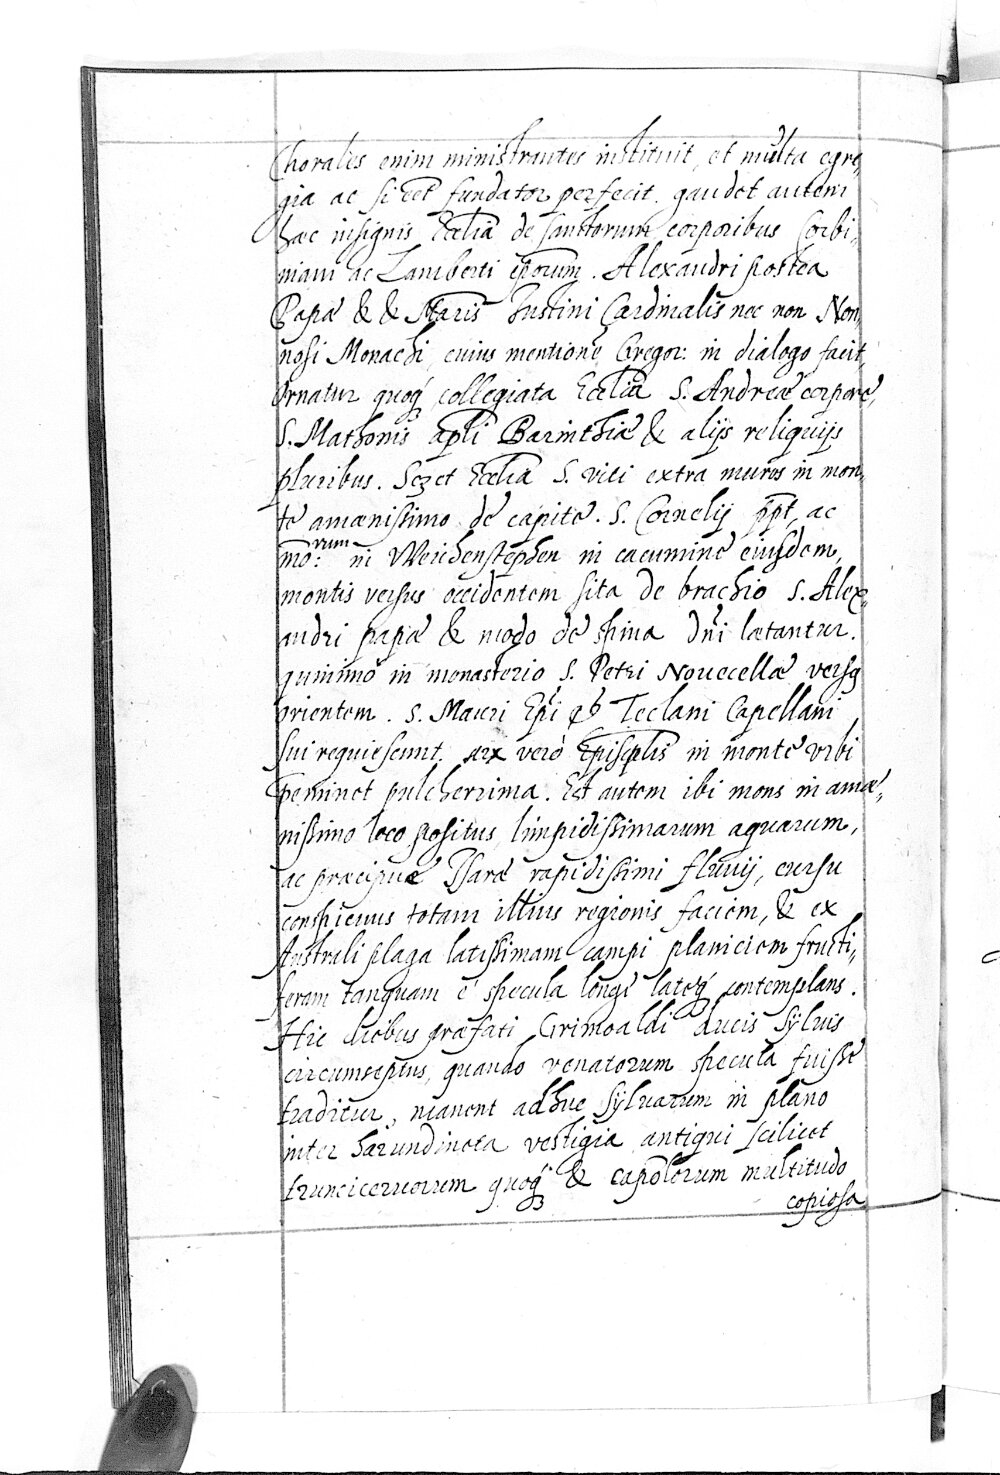 Chorales enim ministrantes instituit, et multa egre„
gia ac si eēt fundator perfecit. gaudet autem
hæc insignis Ecclīa de sanctorum corporibus Corbi„
niani ac Lamberti ēporum. Alexandri postea
Papæ & & Mar̄is Justini Cardinalis nec non Non„
nosi Monachi, cuius mentionē Gregor: in dialogo facit,
Ornatur quoq́ȝ collegiata Ecclīa S. Andreæ corpore,
S. Mathonis apl̄i Barinthiæ & alijs reliquijs
pluribus. Sȝ et Ecclīa S. Viti extra muros in mon„
te amænissimo de capite. S. Cornelij pp̄t, ac
mōrum: in Weichenstephen in cacumine eiusdem,
montis versus occidentem sita de brachio S. Alex„
andri papæ & modo de spina Dn̄i lætantur.
quinimo in monasterio S. Petri Nouecellæ versȝ
orientem. S. Mauri Ep̄i & Teclani Capellani
sui requiescunt. arx verò Episcp̄lis in monte vrbi
peminet pulcherrima. Est autem ibi mons in amæ„
nissimo loco positus, limpidissimarum aquarum,
ac præcipuè Isaræ rapidissimi fluuij, cursu
conspicuus totam illius regionis faciem, & ex
Australi plaga latissimam campi planiciem fructi„
feram tanquam è specula longè lateq́ȝ contemplans.
Hic diebus præfati Grimoaldi ducis syluis
circumseptus, quando venatorum specula fuisse
traditur, manent adhuc syluarum in plano
inter harundineta vestigia antiqui scilicet
trunci ceruorum quoq́ȝ & capolorum multitudo
copiosa